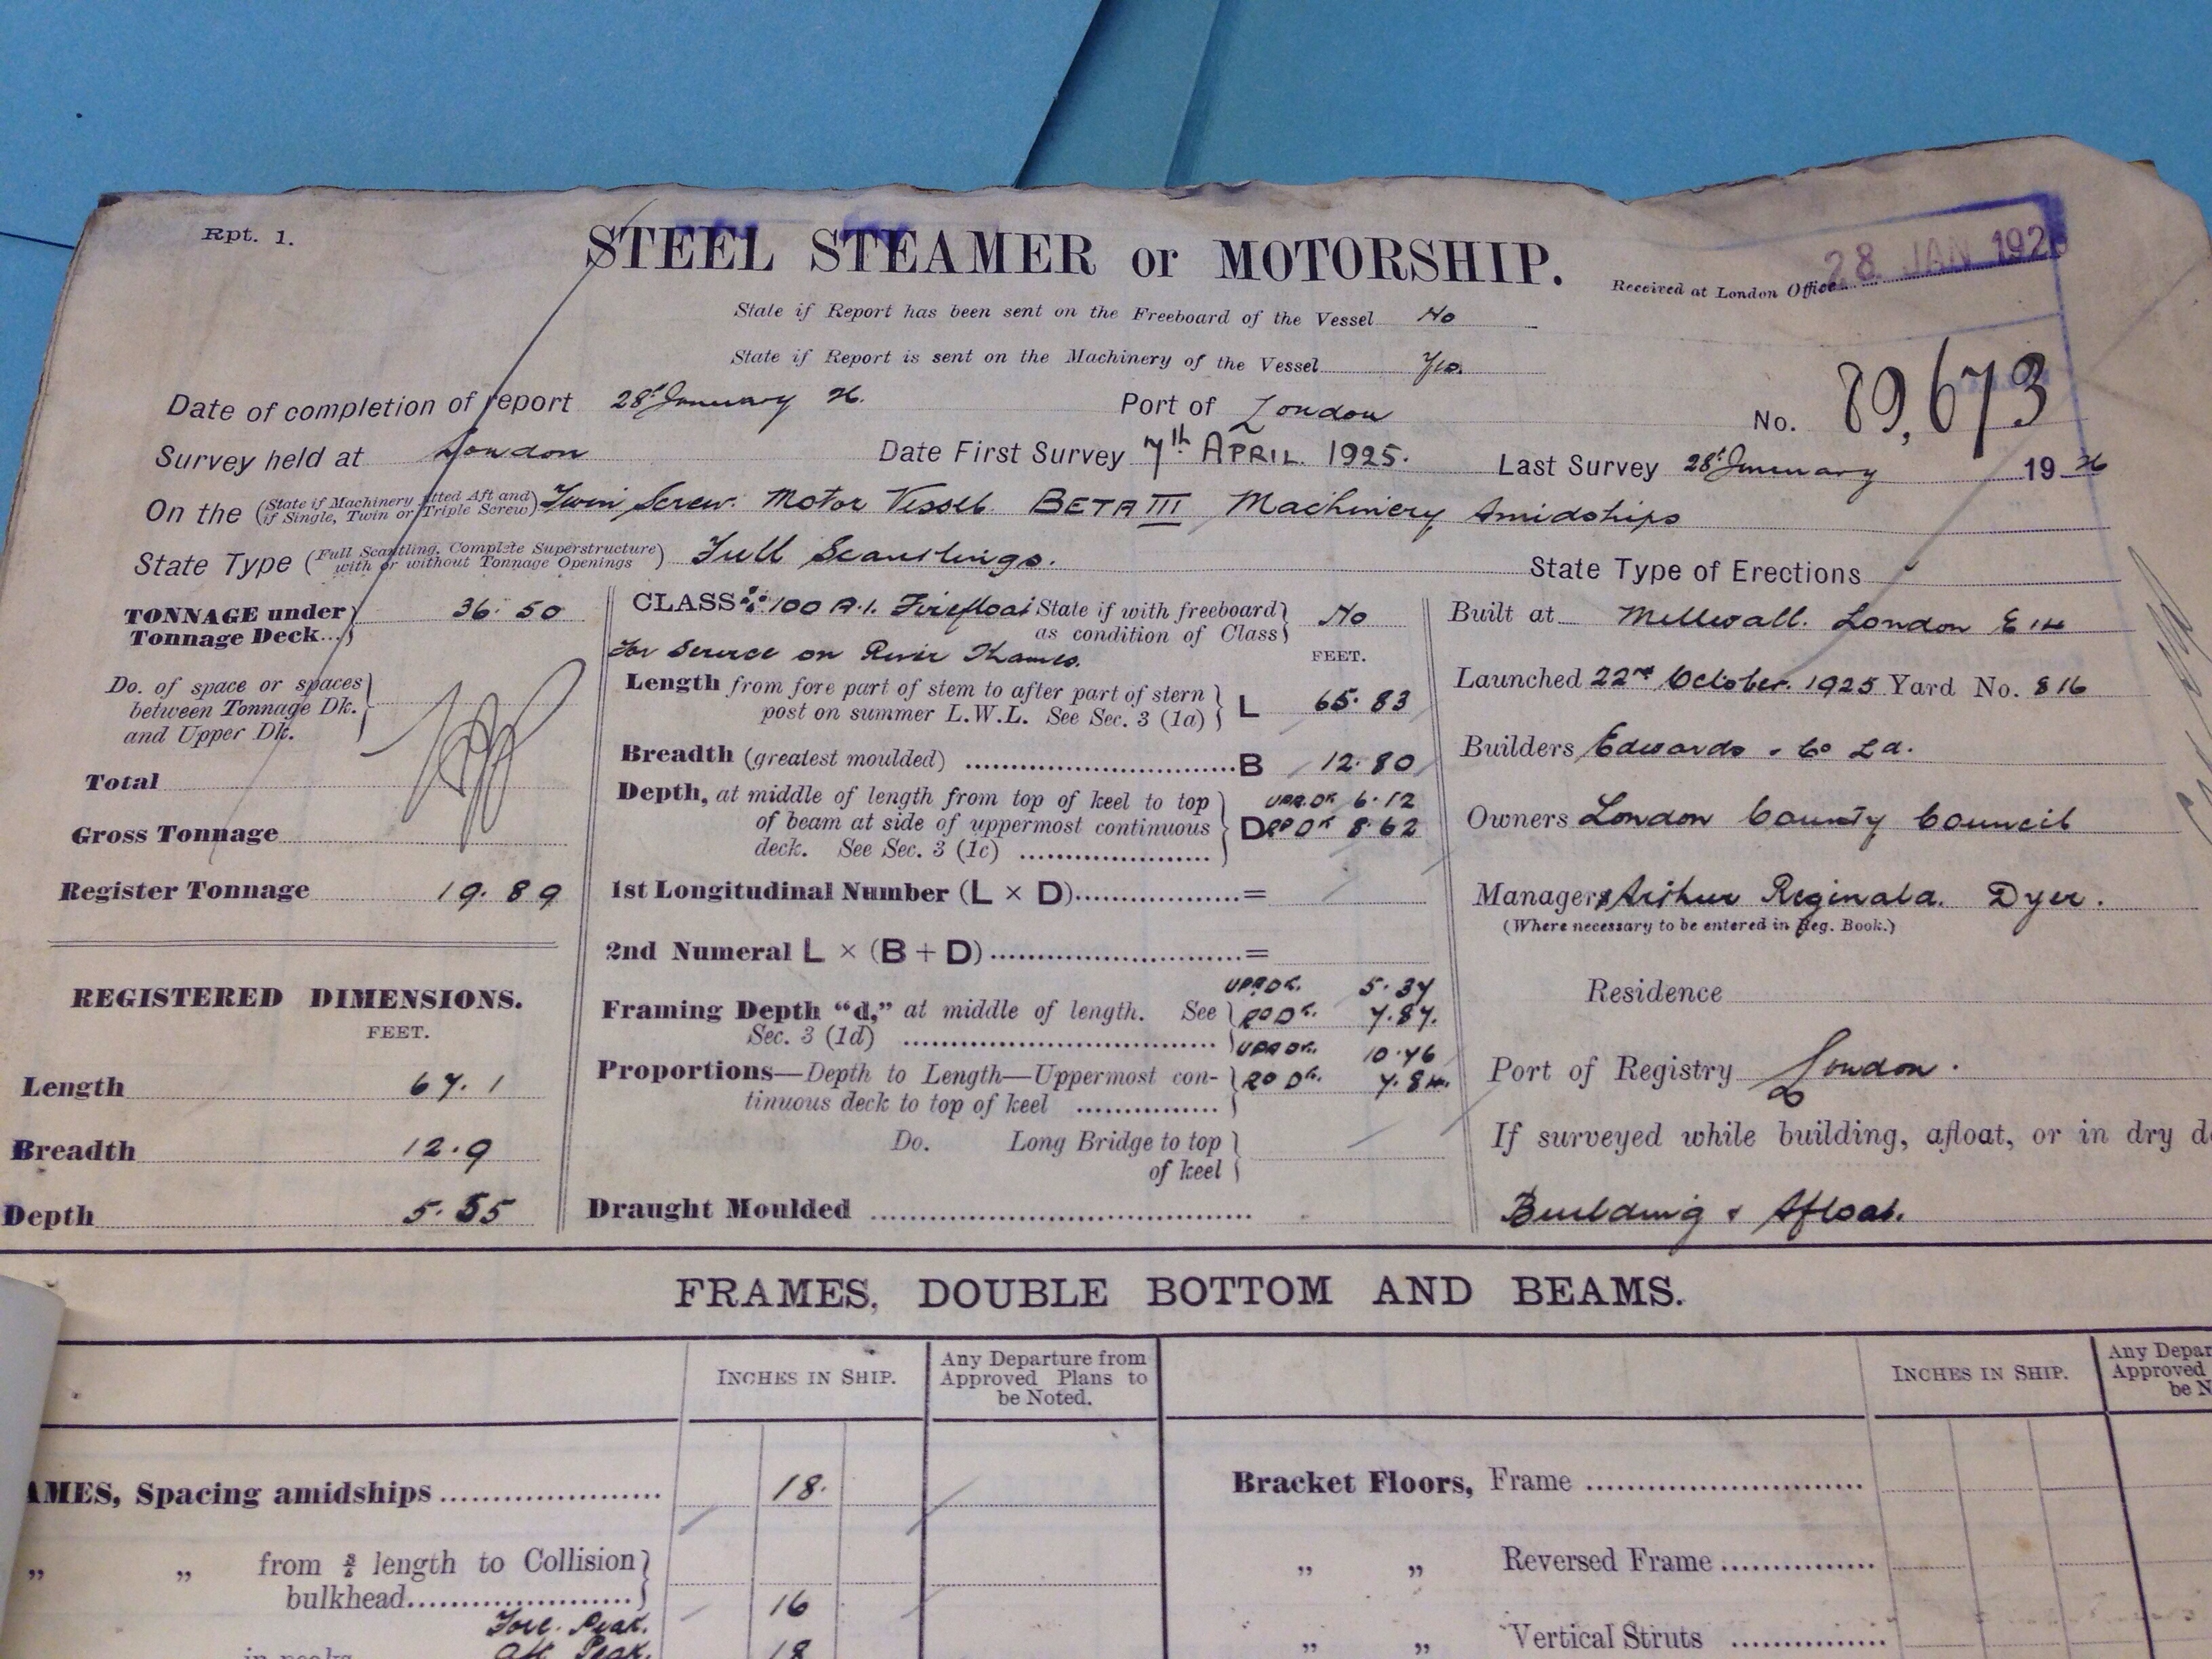 Rpt. 1.
STEEL STEAMER or MOTORSHIP.
Received at London Office 28 JAN 192
State if Report has been sent on the Freeboard of the Vessel No
State if Report is sent on the Machinery of the Vessel Yes.
Date of completion of report 28th January 26. Port of London No. 89,673
Survey held at London Date First Survey 7th APRIL 1925. Last Survey 28th January 19 26
On the (State if Machinery fitted Aft and if Single, Twin or Triple Screw) Twin Screw. Motor Vessel BETA III Machinery Amidships
State Type (Full Scantling, Complete Superstructure with or without Tonnage Openings) Full Scantlings. State Type of Erections
TONNAGE under Tonnage Deck... 36.50
Do. of space or spaces
between Tonnage Dk.
and Upper Dk.
Total
Gross Tonnage
Register Tonnage 19.89
REGISTERED DIMENSIONS.
FEET.
Length 67.1
Breadth 12.9
Depth 5.55
CLASS 100 A.1. Firefloat State if with freeboard as condition of Class No
For Service on River Thames.
FEET.
Length from fore part of stem to after part of stern
post on summer L.W.L. See Sec. 3 (1a) L 65.83
Breadth (greatest moulded) B 12.80
Depth, at middle of length from top of keel to top UPR.DK 6.12
of beam at side of uppermost continuous D RD DK 8.62
deck. See Sec. 3 (1c)
1st Longitudinal Number (L × D) =
2nd Numeral L × (B + D) =
UPR DK. 5.37
Framing Depth "d," at middle of length. See RD DK. 7.87.
Sec. 3 (1d)
UPR DK. 10.76
Proportions—Depth to Length—Uppermost con- RD DK. 7.64.
tinuous deck to top of keel
Do. Long Bridge to top
of keel
Draught Moulded
Built at Millwall. London E14
Launched 22nd October. 1925 Yard No. 816
Builders Edwards & Co Ld.
Owners London County Council
Managers Arthur Reginald. Dyer.
(Where necessary to be entered in Reg. Book.)
Residence
Port of Registry London.
If surveyed while building, afloat, or in dry
Building & Afloat.
FRAMES, DOUBLE BOTTOM AND BEAMS.
INCHES IN SHIP.
Any Departure from
Approved Plans to
be Noted.
INCHES IN SHIP.
Any Depar
Approved
be N
AMES, Spacing amidships 18.
" " from 3/5 length to Collision
bulkhead 16
Fore Peak.
in peaks Aft Peak. 18
Bracket Floors, Frame
" " Reversed Frame
" " Vertical Struts